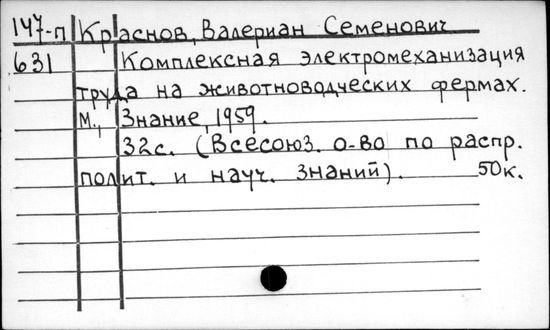 147-п Краснов, Валериан Семенович
631 Комплексная электромеханизация
труда на животноводческих фермах.
М., Знание, 1959.
32с. (Всесоюз. о-во по распр.
полит. и науч. знаний). 50к.